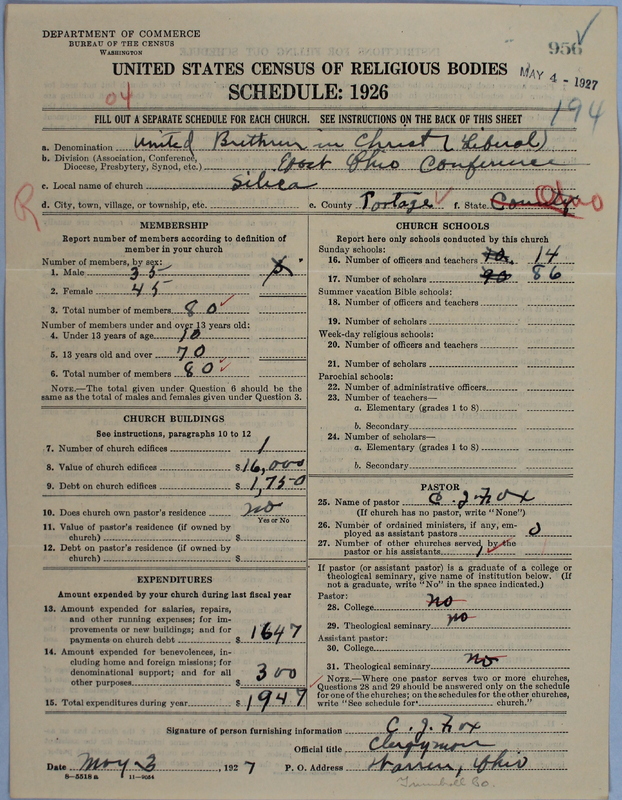 DEPARTMENT OF COMMERCE
BUREAU OF THE CENSUS
WASHINGTON
956
MAY 4 - 1927
194
UNITED STATES CENSUS OF RELIGIOUS BODIES
SCHEDULE: 1926
04
FILL OUT A SEPARATE SCHEDULE FOR EACH CHURCH. SEE INSTRUCTIONS ON THE BACK OF THIS SHEET
a. Denomination United Brethren in Christ (Liberal)
b. Division (Association, Conference, Diocese, Presbytery, Synod, etc.) East Ohio Conference
c. Local name of church Silica
R
d. City, town, village, or township, etc. e. County Portage f. State County Ohio
MEMBERSHIP
Report number of members according to definition of member in your church
Number of members, by sex:
1. Male 35
2. Female 45
3. Total number of members 80
Number of members under and over 13 years old:
4. Under 13 years of age 10
5. 13 years old and over 70
6. Total number of members 80
NOTE.—The total given under Question 6 should be the same as the total of males and females given under Question 3.
CHURCH BUILDINGS
See instructions, paragraphs 10 to 12
7. Number of church edifices 1
8. Value of church edifices $16,000
9. Debt on church edifices $1,750
10. Does church own pastor's residence no
Yes or No
11. Value of pastor's residence (if owned by church) $
12. Debt on pastor's residence (if owned by church) $
EXPENDITURES
Amount expended by your church during last fiscal year
13. Amount expended for salaries, repairs, and other running expenses; for improvements or new buildings; and for payments on church debt $1647
14. Amount expended for benevolences, including home and foreign missions; for denominational support; and for all other purposes $300
15. Total expenditures during year $1947
CHURCH SCHOOLS
Report here only schools conducted by this church
Sunday schools:
16. Number of officers and teachers 10. 14
17. Number of scholars 90 86
Summer vacation Bible schools:
18. Number of officers and teachers
19. Number of scholars
Week-day religious schools:
20. Number of officers and teachers
21. Number of scholars
Parochial schools:
22. Number of administrative officers
23. Number of teachers—
a. Elementary (grades 1 to 8)
b. Secondary
24. Number of scholars—
a. Elementary (grades 1 to 8)
b. Secondary
PASTOR
25. Name of pastor C. J. Fox
(If church has no pastor, write "None")
26. Number of ordained ministers, if any, employed as assistant pastors 0
27. Number of other churches served by the pastor or his assistants 1
If pastor (or assistant pastor) is a graduate of a college or theological seminary, give name of institution below. (If not a graduate, write "No" in the space indicated.)
Pastor:
28. College no
29. Theological seminary no
Assistant pastor:
30. College
31. Theological seminary no
NOTE.—Where one pastor serves two or more churches, Questions 28 and 29 should be answered only on the schedule for one of the churches; on the schedules for the other churches, write "See schedule for church."
Signature of person furnishing information C. J. Fox
Official title Clergyman
Date May 3, 1927 P. O. Address Warren, Ohio
8—5518 a 11—9054
Trumbull Co.